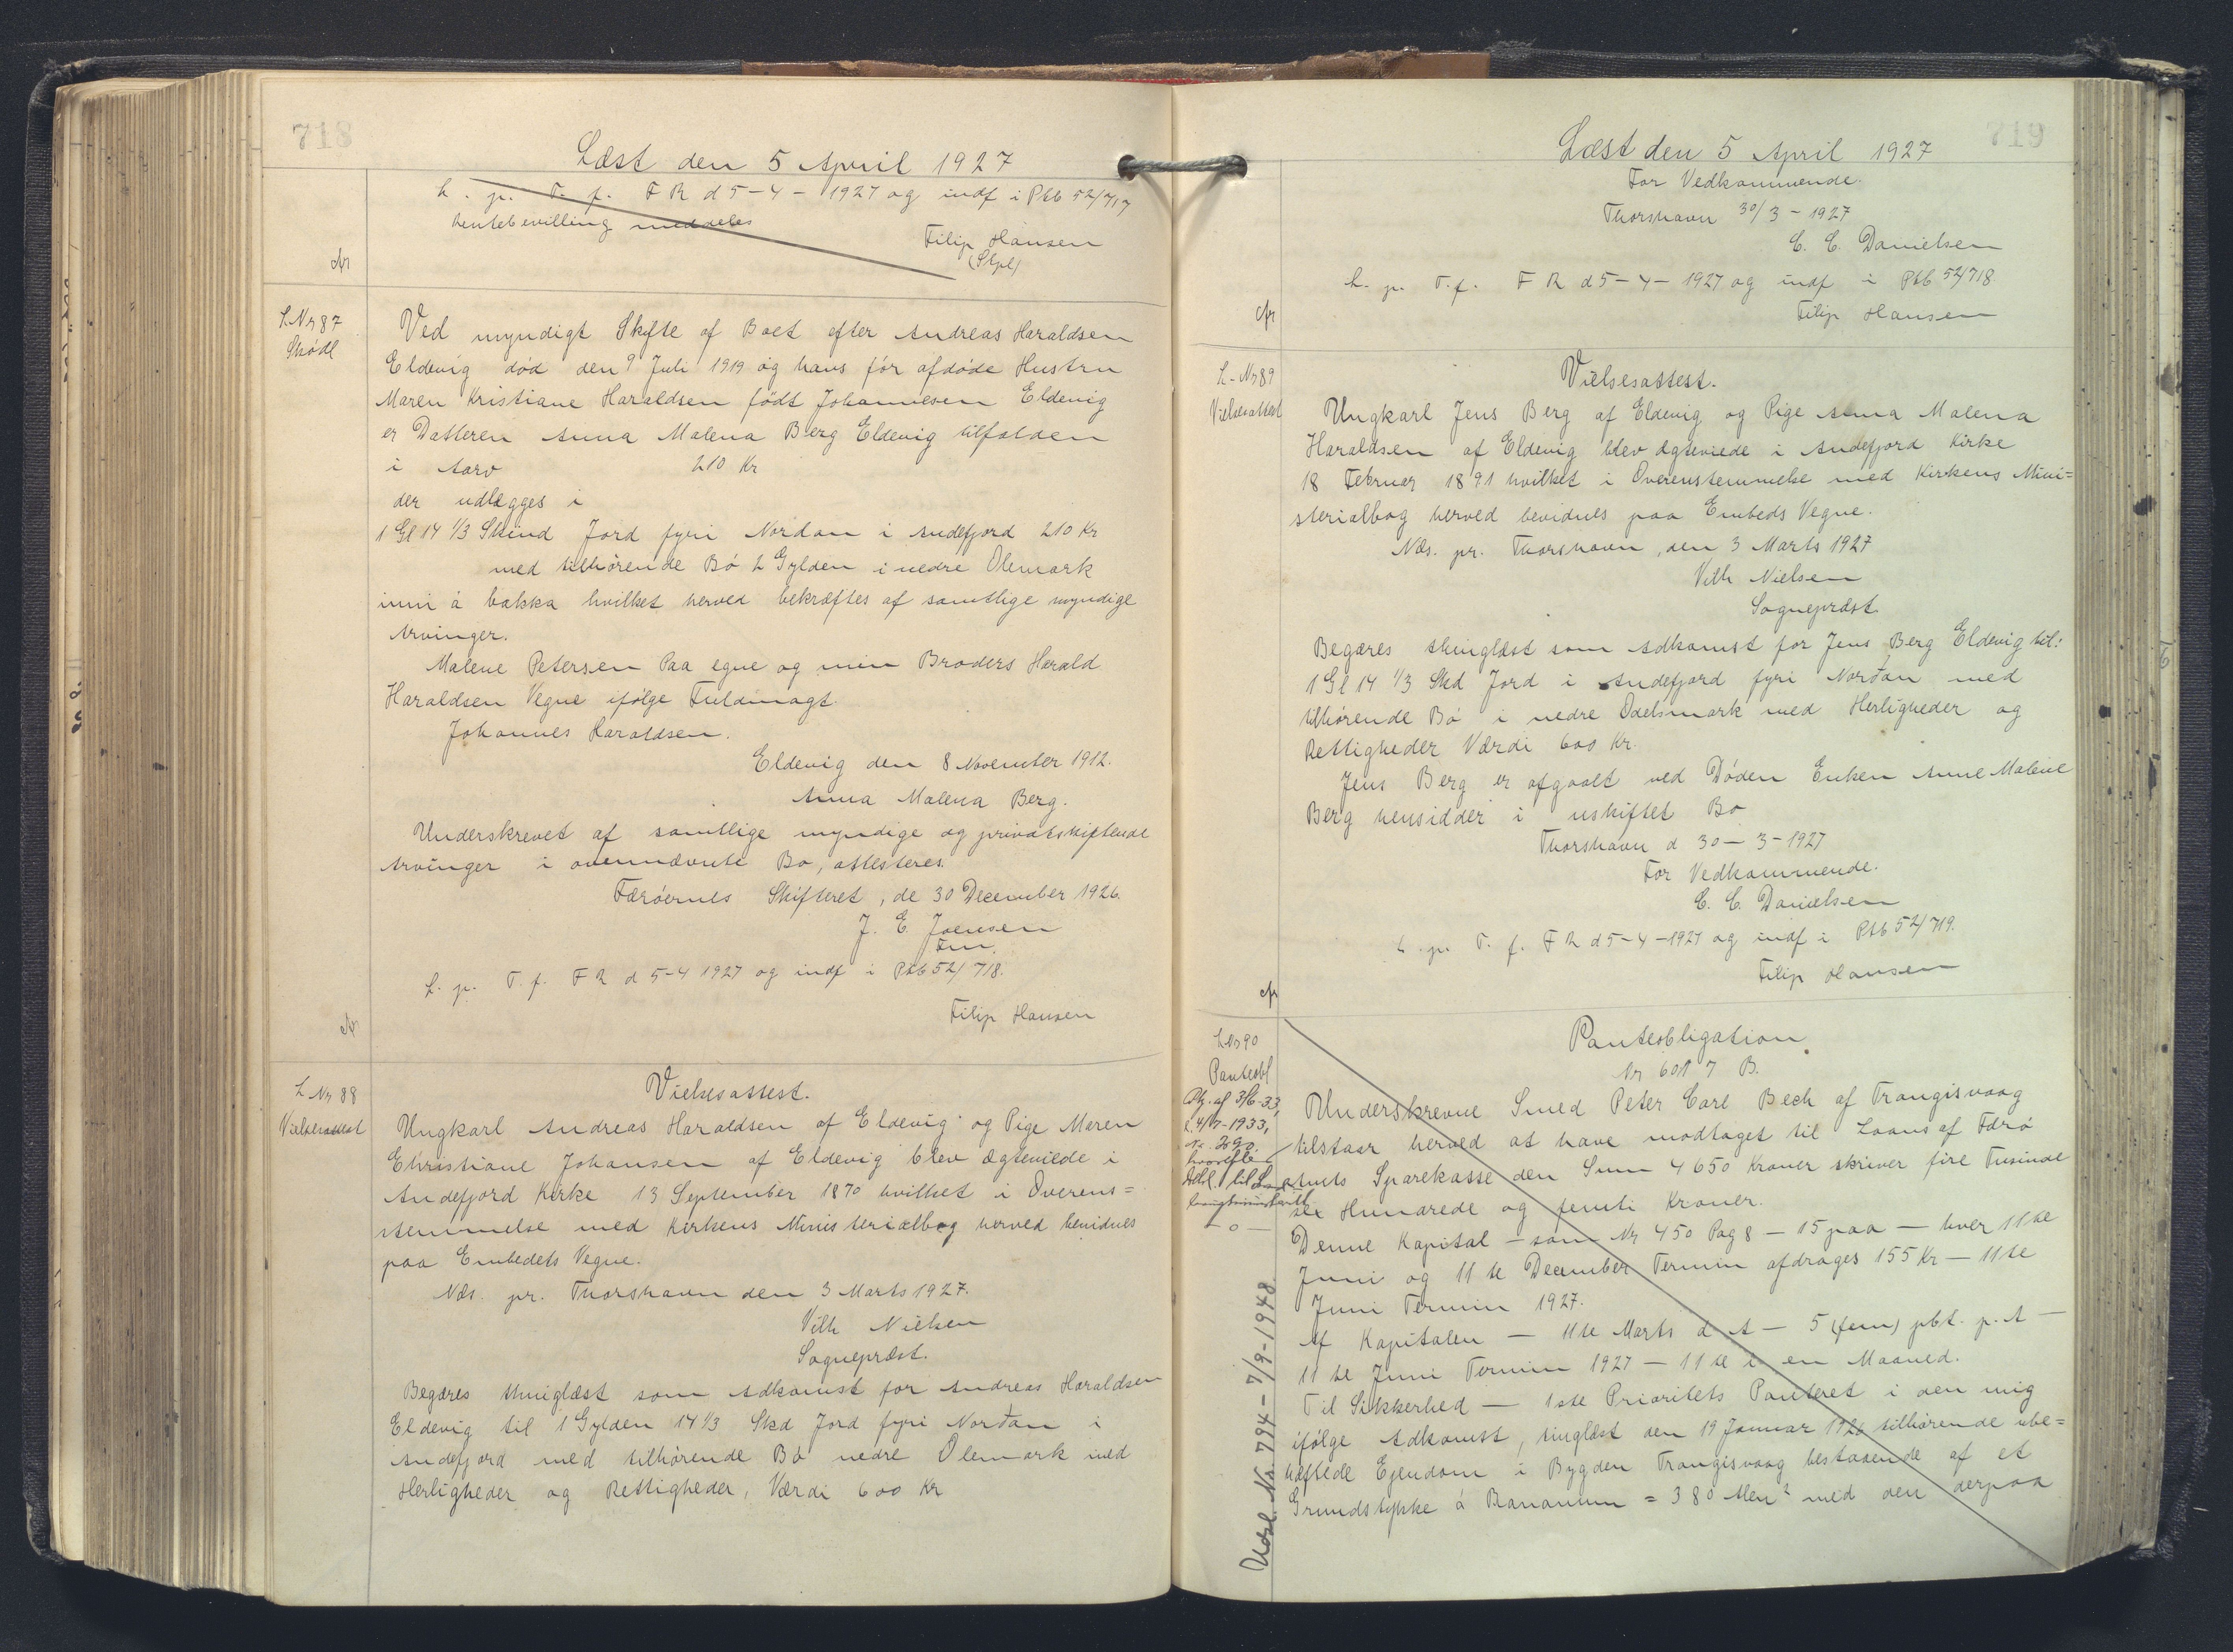 718
Læst den 5 April 1927
L. p. T. f. F R d 5-4-1927 og indf i Ptb 52/717
hentebevilling meddeles
Filip Hansen
(Stpl)
cfr
L.Nr 87
Skødl
Ved myndigt Skifte af Boet efter Andreas Haraldsen
Eldevig død den 9 Juli 1919 og hans før afdøde Hustru
Maren Kristiane Haraldsen født Johannesen Eldevig
er Datteren Anna Malena Berg Eldevig tilfalden
i Aarv 210 Kr
der udlægges i
1 Gl 14 1/3 Skind Jord fyri Nordan i Andefjord 210 Kr
med tilhörende Bö 2 Gylden i nedre Olemark
inni á bakka hvilket herved bekræftes af samtlige myndige
Arvinger.
Malene Petersen Paa egne og min Broders Harald
Haraldsen Vegne ifølge Fuldmagt.
Johannes Haraldsen.
Eldevig den 8 November 1912.
Anna Malena Berg.
Underskrevet af samtlige myndige og privatskiftende
Arvinger i ovennævnte Bo, attesteres.
Færøernes Skifteret, de 30 December 1926.
J. E. Joensen
Fm.
L. p. T. f. F R d 5-4 1927 og indf i Ptb 52/718.
Filip Hansen
cfr
L Nr 88
Vielsesattest
Vielsesattest.
Ungkarl Andreas Haraldsen af Eldevig og Pige Maren
Christiane Johansen af Eldevig blev ægteviede i
Andefjord Kirke 13 September 1870 hvilket i Overens=
stemmelse med Kirkens Ministerialbog herved bevidnes
paa Embedets Vegne.
Næs. pr. Thorshavn den 3 Marts 1927.
Vilh Nielsen
Sognepræst.
Begæres thinglæst som Adkomst for Andreas Haraldsen
Eldevig til 1 Gylden 14 1/3 Skd Jord fyri Norðan i
Andefjord med tilhørende Bö nedre Olemark med
Herligheder og Rettigheder, Værdi 600 Kr
719
Læst den 5 April 1927
For Vedkommende.
Thorshavn 30/3-1927
C. C. Danielsen
L. p. T. f. F R d 5-4-1927 og indf i Ptb 52/718.
Filip Hansen
cfr
L-Nr 89
Vielsesattest
Vielsesattest.
Ungkarl Jens Berg af Eldevig og Pige Anna Malena
Haraldsen af Eldevig blev ægteviede i Andefjord Kirke
18 Februar 1891 hvilket i Overenstemmelse med Kirkens Mini=
sterialbog herved bevidnes paa Embeds Vegne.
Næs. pr. Thorshavn, den 3 Marts 1927
Vilh Nielsen
Sognepræst.
Begæres thinglæst som Adkomst for Jens Berg Eldevig til:
1 Gl 14 1/3 Skd Jord i Andefjord fyri Norðan med
tilhørende Bö i nedre Odelsmark med Herligheder og
Rettigheder Værdi 600 Kr.
Jens Berg er afgaaet ved Döden Enken Anne Malene
Berg hensidder i uskiftet Bo
Thorshavn d 30-3-1927
For Vedkommende.
C. C. Danielsen
L. p. T. f. F R d 5-4-1927 og indf i Ptb 52/719.
Filip Hansen
cfr
L Nr 90
Panteobl
af 3/6-33,
L. 4/7-1933,
No. 290
Udsl. Nr. 794-7/9-1948
Panteobligation
Nr 6017 B.
Underskrevne Smed Peter Carl Bech af Trangisvaag
tilstaar herved at have modtaget til Laans af Færø
Amts Sparekasse den Sum 4650 Kroner skriver fire Tusinde
sex Hundrede og femti Kroner.
Denne Kapital - som Nr 450 Pag 8 - 15 paa - hver 11te
Juni og 11te December Termin afdrages 155 Kr - 11te
Juni Termin 1927.
Af Kapitalen - 11te Marts d A - 5 (fem) pct. p. A -
11te Juni Termin 1927 - 11te i en Maaned.
Til Sikkerhed - 1ste Prioritets Panteret i den mig
ifølge Adkomst, tinglæst den 19 Januar 1926 tilhørende ube=
hæftede Ejendom i Bygden Trangisvaag bestaaende af et
Grundstykke á Bananum = 380 Alen² med den derpaa